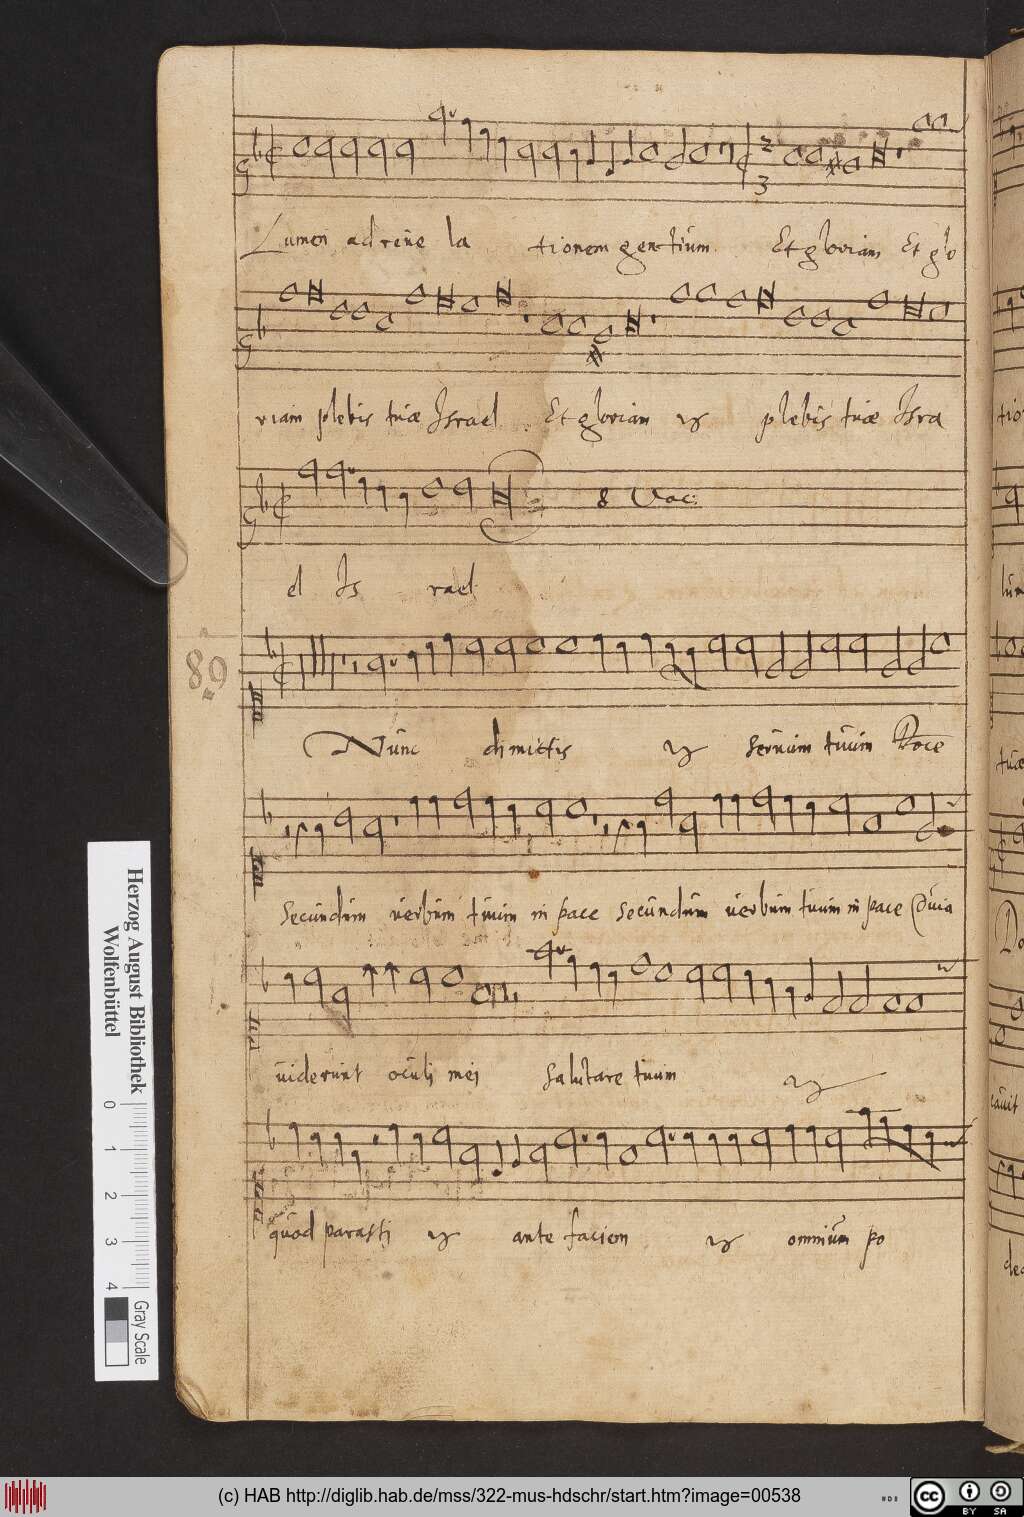 Lumen ad reue la tionem gentium Et gloriam Et glo
riam plebis tuæ Israel Et gloriam ij plebis tuæ Isra
8 Voc:
el Is rael
89
Nunc dimittis ij seruum tuum Do͞ce
Secundum uerbum tuum in pace secundum uerbum tuum in pace Quia
uiderunt oculi mei salutare tuum ij
quod parasti ij ante faciem ij omnium po
Herzog August Bibliothek
Wolfenbüttel
0 1 2 3 4
Gray Scale
(c) HAB http://diglib.hab.de/mss/322-mus-hdschr/start.htm?image=00538
cc BY SA